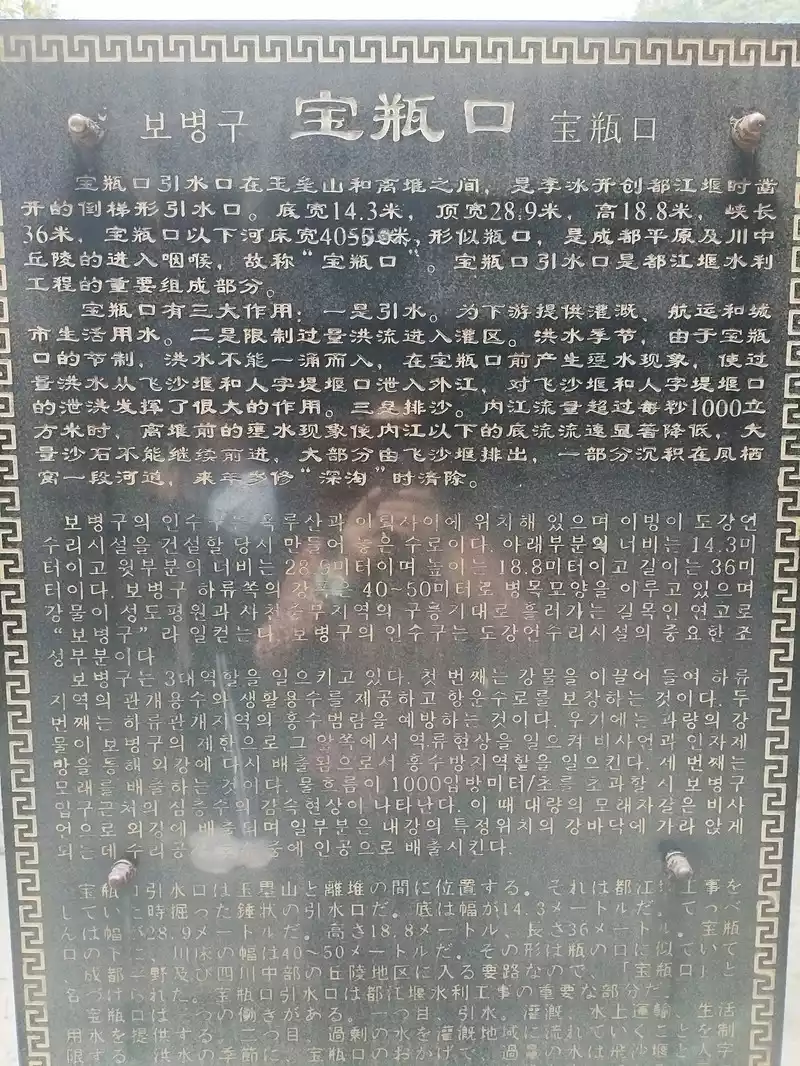 보병구 宝瓶口 宝瓶口
宝瓶口引水口在玉垒山和离堆之间，是李冰开创都江堰时凿
开的倒梯形引水口。底宽14.3米，顶宽28.9米，高18.8米，峡长
36米，宝瓶口以下河床宽40 50米，形似瓶口，是成都平原及川中
丘陵的进入咽喉，故称“宝瓶口”。宝瓶口引水口是都江堰水利
工程的重要组成部分。
宝瓶口有三大作用：一是引水。为下游提供灌溉、航运和城
市生活用水。二是限制过量洪流进入灌区。洪水季节，由于宝瓶
口的节制，洪水不能一涌而入，在宝瓶口前产生壅水现象，使过
量洪水从飞沙堰和人字堤堰口泄入外江，对飞沙堰和人字堤堰口
的泄洪发挥了很大的作用。三是排沙。内江流量超过每秒1000立
方米时，离堆前的壅水现象使内江以下的底流流速显著降低，大
量沙石不能继续前进，大部分由飞沙堰排出，一部分沉积在凤栖
窝一段河道，来年岁修“深淘”时清除。
보병구의 인수구는 옥루산과 이퇴사이에 위치해 있으며 이빙이 도강언
수리시설을 건설할 당시 만들어 놓은 수로이다. 아래부분의 너비는 14.3미
터이고 윗부분의 너비는 28.9미터이며 높이는 18.8미터이고 길이는 36미
터이다. 보병구 하류쪽의 강폭은 40~50미터로 병목모양을 이루고 있으며
강물이 성도평원과 사천중부지역의 구릉지대로 흘러가는 길목인 연고로
“보병구” 라 일컫는다. 보병구의 인수구는 도강언수리시설의 중요한 조
성부분이다
보병구는 3대역할을 일으키고 있다. 첫 번째는 강물을 이끌어 들여 하류
지역의 관개용수와 생활용수를 제공하고 항운수로를 보장하는 것이다. 두
번째는 하류관개지역의 홍수범람을 예방하는 것이다. 우기에는 과량의 강
물이 보병구의 제한으로 그 앞쪽에서 역류현상을 일으켜 비사언과 인자제
방을 통해 외강에 다시 배출됨으로서 홍수방지역할을 일으킨다. 세 번째는
모래를 배출하는 것이다. 물흐름이 1000입방미터/초를 초과할 시 보병구
입구근처의 심층수의 감속현상이 나타난다. 이 때 대량의 모래자갈은 비사
언으로 외강에 배출되며 일부분은 내강의 특정위치의 강바닥에 가라 앉게
되는데 수리공 중에 인공으로 배출시킨다.
宝瓶口引水口は玉塁山と離堆の間に位置する。それは都江堰工事を
していた時掘った錘状の引水口だ。底は幅が14.3メートルだ。てっぺ
んは幅が28.9メートルだ。高さ18.8メートル、長さ36メートル。宝瓶
口の下に、川床の幅は40~50メートルだ。その形は瓶の口に似ていて
、成都平野及び四川中部の丘陵地区に入る要路なので、「宝瓶口」と
名づけられた。宝瓶口引水口は都江堰水利工事の重要な部分だ。
宝瓶口は三つの働きがある。一つ目、引水。灌漑、水上運輸、生活
用水を提供する。二つ目、過剰の水を灌漑地域に流れていくことを制
限する。洪水の季節に、宝瓶口のおかげで、過量の水は飛沙堰と人字